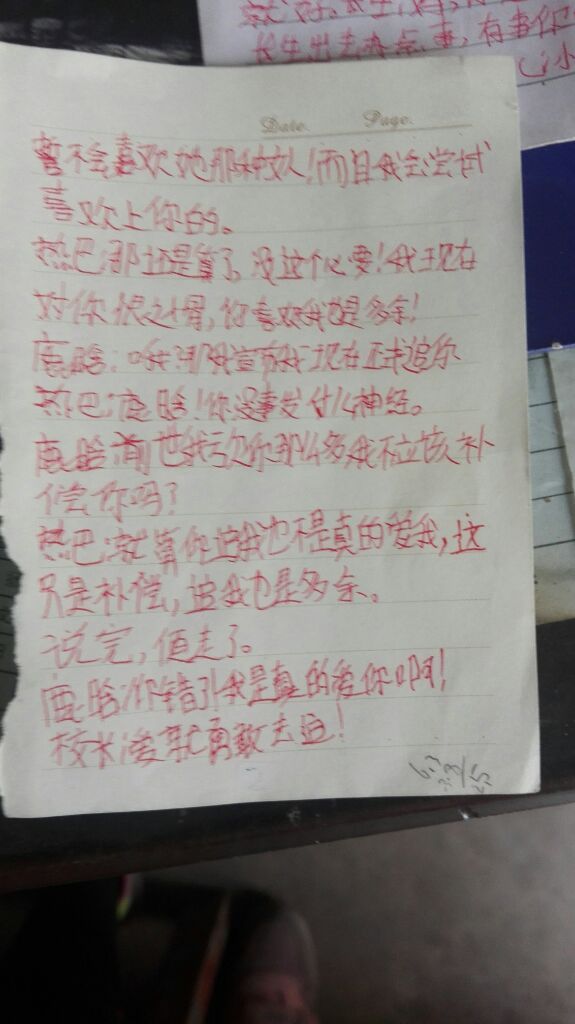 就好。长生
长生出去办点事，有事你
Date. Page.
暂不会喜欢她那种女人！而且我会尝试
喜欢上你的。
热巴：那还是算了，没这个必要！我现在
对你恨之入骨，你喜欢我也是多余！
鹿晗：哦！那我宣布我现在正式追你
热巴：鹿晗！你没事发什么神经。
鹿晗：前世我亏欠你那么多我不应该补
偿你吗？
热巴：就算你追我也不是真的爱我，这
只是补偿，追我也是多余。
说完，便走了。
鹿晗：你错了！我是真的爱你啊！
校长：爱就勇敢去追！